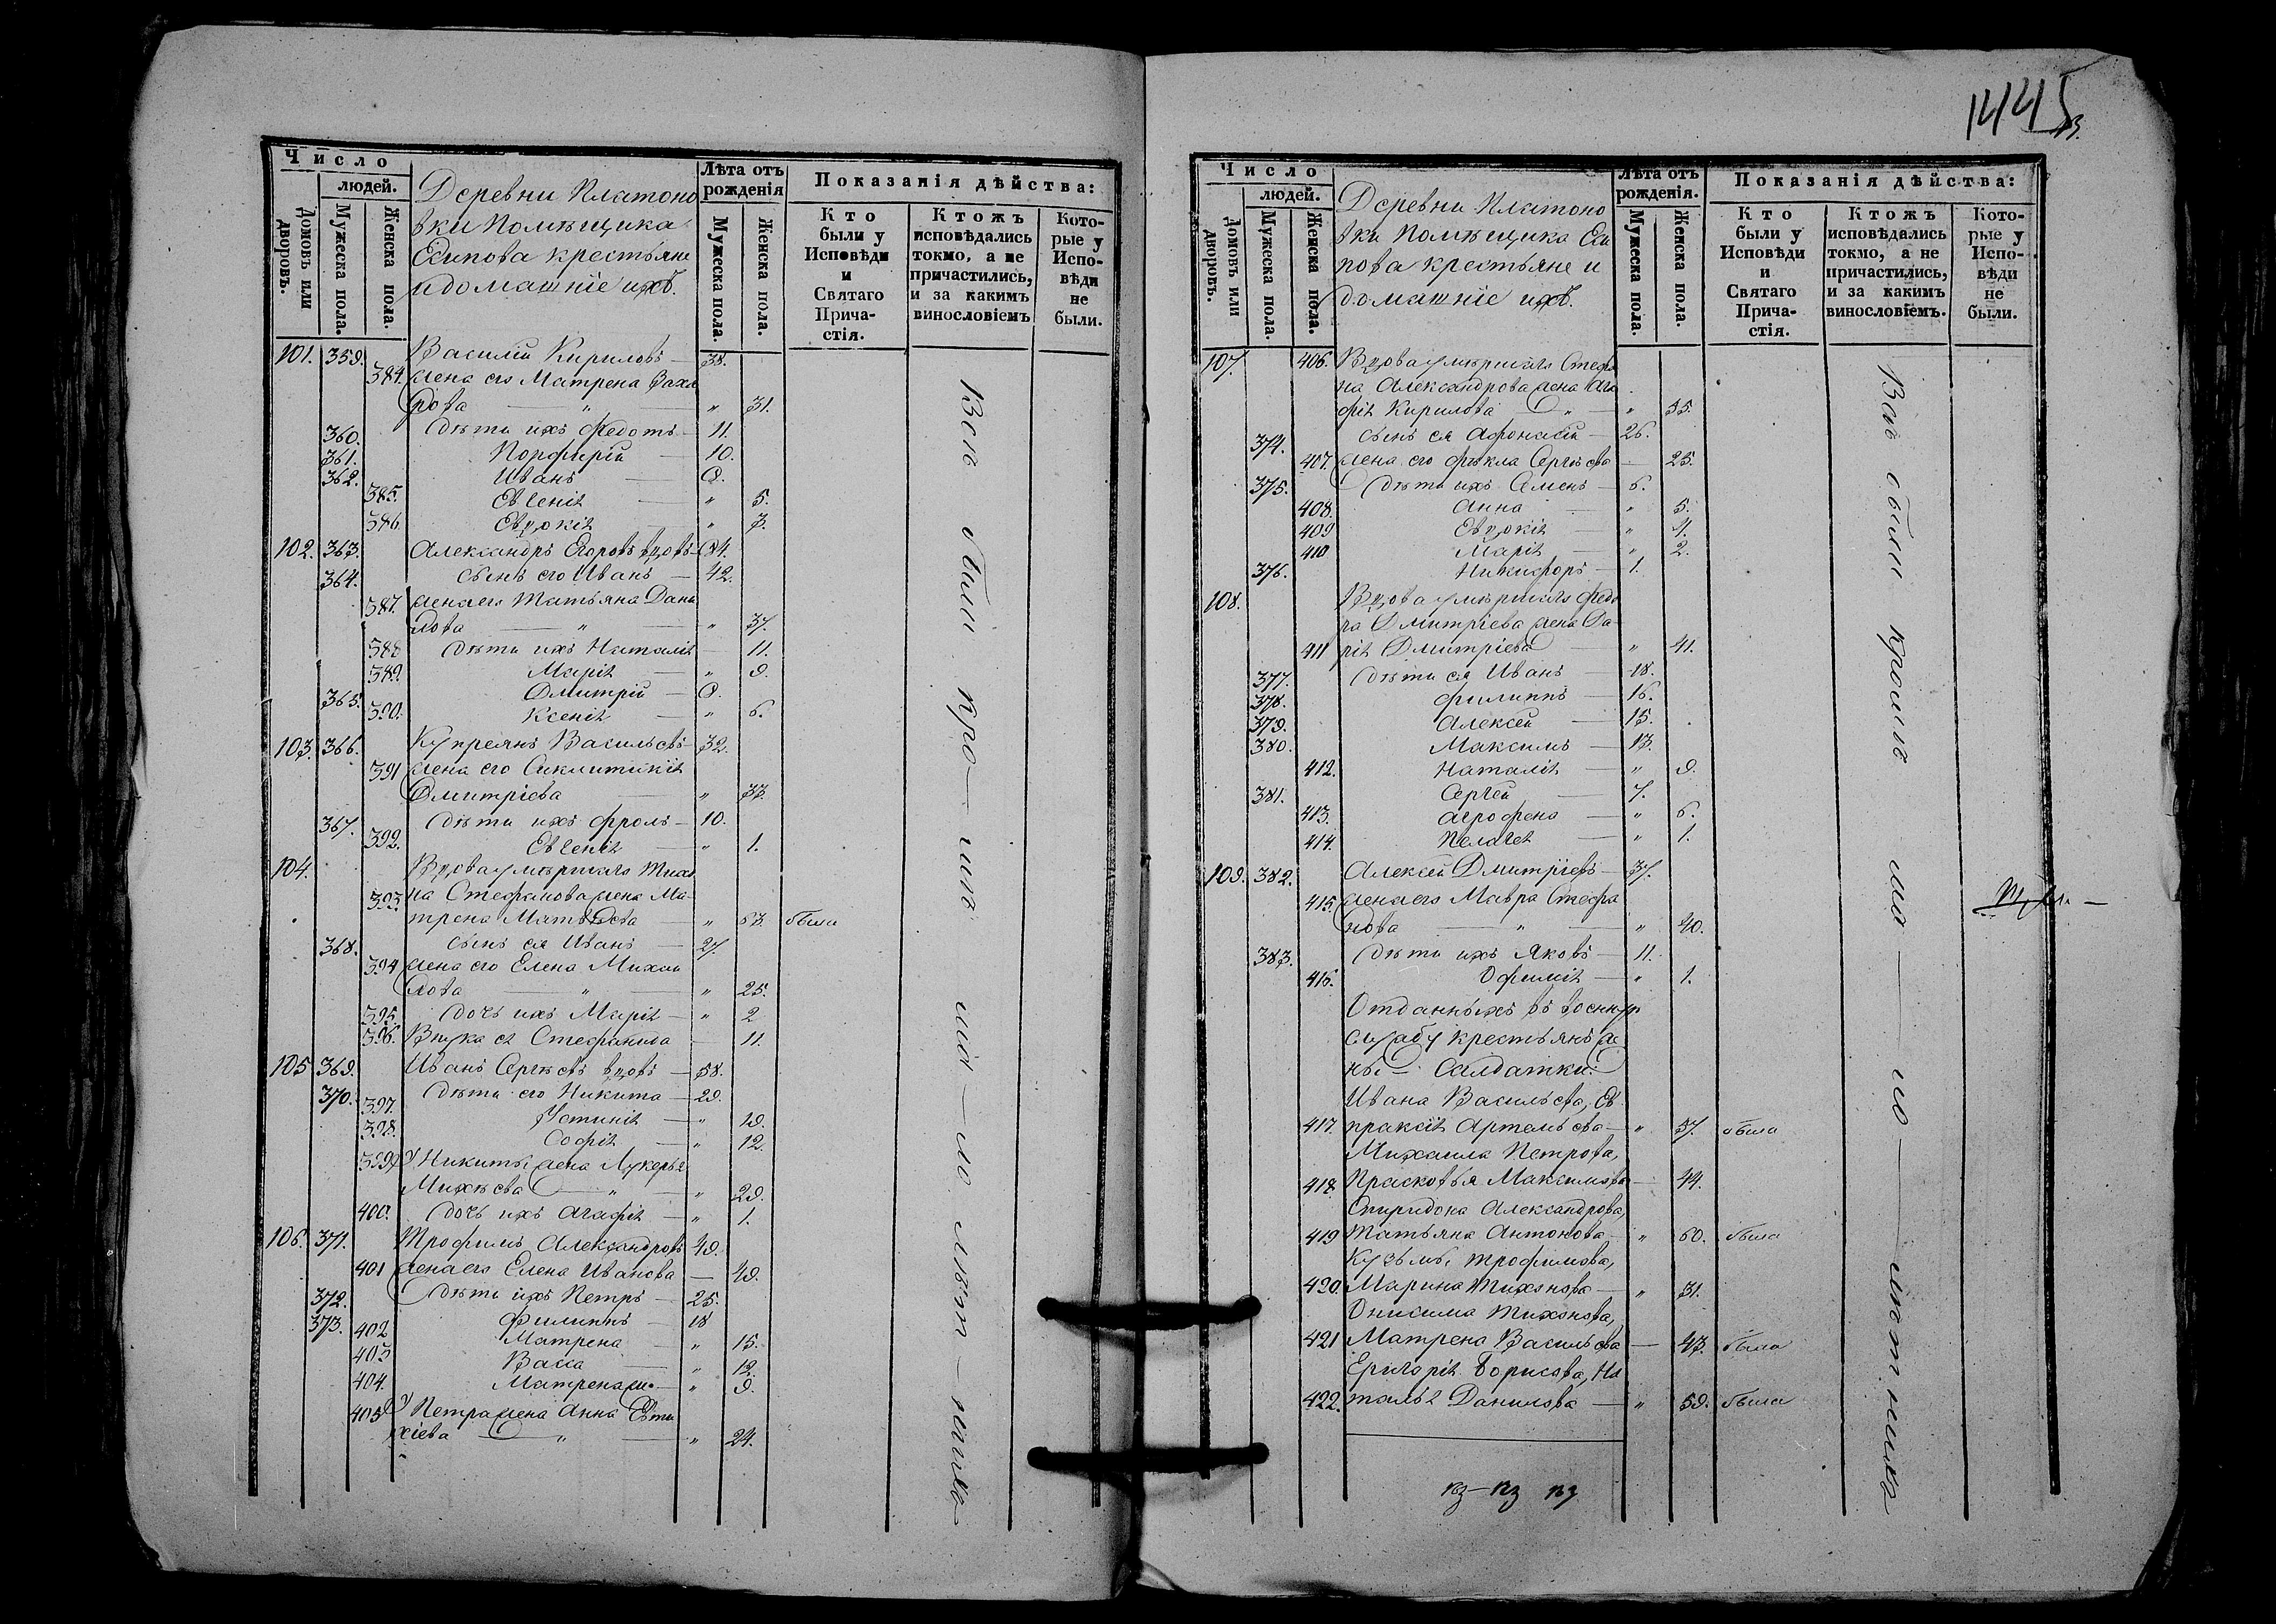 1445
Число
людей.
Домовъ или дворовъ.
Мужеска пола.
Женска пола.
Деревни Платоно
вки Помѣщика
Есипова крестьяне
и домашніе ихъ.
Лѣта отъ рожденія
Мужеска пола.
Женска пола.
Показанія дѣйства:
Кто были у Исповѣди и Святаго Прича-стія.
Ктожъ исповѣдались токмо, а не причастились, и за какимъ винословіемъ
Кото-рые у Испо-вѣди не были.
101. 359. Василій Кириловъ — 38.
384. жена его Матрена Заха
рова — " — " 31.
360. Дѣти ихъ Федотъ — 11.
361. Порфирій — 10.
362. Иванъ — 8.
385. Евгенія — " 5.
386. Евдокія " 3.
102. 363. Александръ Егоровъ вдовъ — 84.
364. сынъ его Иванъ — 42.
387. жена его Татьяна Дани
лова — " — " 37.
388 Дѣти ихъ Наталія — 11.
389. Марія — " 9.
365. Дмитрій — 8.
390. Ксенія — " 6.
103. 366. Купреянъ Васильевъ — 32.
391 жена его Сиклитикія
Дмитріева — " 33.
367. Дѣти ихъ Фролъ — 10.
392. Евгенія — " 1.
104. Вдова умершаго Тихо
393. на Стефанова жена Ма-
трена Матвѣева — " 63. была
368. сынъ ея Иванъ — 27.
394 жена его Елена Михаи
лова — " — " 25.
395. дочь ихъ Марія — " 2
396. Внука ея Стефанида — 11.
105 369. Иванъ Сергѣевъ вдовъ — 58.
370. Дѣти его Никита — 29.
397. Устинія — " 19.
398. Софія — " 12.
399. У Никиты жена Лукерья
Михѣева — " — " 29.
400. дочь ихъ Агафія — " 1.
106. 371. Трофимъ Александровъ 49.
401 жена его Елена Иванова — 49.
372. Дѣти ихъ Петръ — 25.
373. Филиппъ — 18
402 Матрена — " 15.
403 Васса — " 12.
404. Матрена " 9.
405 У Петра жена Анна Евти
хіева — " — " 24.
Всѣ были кро—мѣ ма—ло лѣт—нихъ
Число
людей.
Домовъ или дворовъ.
Мужеска пола.
Женска пола.
Деревни Платоно
вки Помѣщика Еси
пова крестьяне и
домашніе ихъ.
Лѣта отъ рожденія.
Мужеска пола.
Женска пола.
Показанія дѣйства:
Кто были у Исповѣди и Святаго Прича-стія.
Ктожъ исповѣдались токмо, а не причастились, и за какимъ винословіемъ.
Кото-рые у Испо-вѣди не были.
107. 406. Вдова умершаго Стефа
на Александрова жена Ага
фія Кирилова — " — " 55.
374. сынъ ея Афонасій — 26.
407. жена его Фекла Сергѣева — 25.
375. Дѣти ихъ Семенъ — 6.
408. Анна — " 5.
409 Евдокія — " 4.
410 Марія — " 2.
376. Никифоръ — 1.
108. Вдова умершаго Федо
ра Дмитріева жена Да-
411 рія Дмитріева — " 41.
377. Дѣти ея Иванъ — 18.
378. Филиппъ — 16.
379. Алексей — 15.
380. Максимъ — 13.
412. Наталія — " 9.
381. Сергей — 7.
413. Агрофена — " 6.
414. Пелагея — " 1.
109. 382. Алексѣй Дмитріевъ — 37.
415. жена его Мавра Стефа
нова — " — " 40.
383. Дѣти ихъ Яковъ — 11.
416. Офимія — " 1.
Отданныхъ въ военную
службу крестьянъ же
ны — Салдатки:
Ивана Васильева, Ев
417. праксія Артемьева — " 57. была
Михаила Петрова,
418. Прасковья Максимова — 44.
Спиридона Александрова,
419 Татьяна Антонова — " 60. была
Кузьмы Трофимова,
420. Марина Тихонова — " 31.
Онисима Тихонова,
421 Матрена Васильева — 43. была
Григорія Борисова, На
422. талья Данилова — " 59. была
Всѣ были кромѣ ма—ло—лѣтнихъ